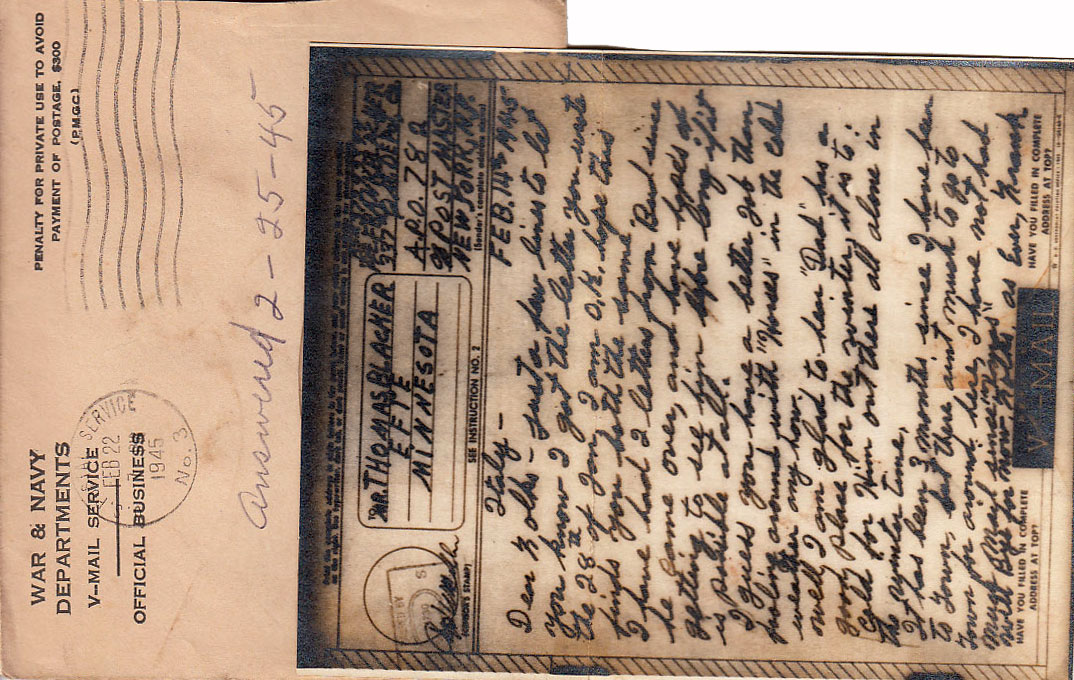 PENALTY FOR PRIVATE USE TO AVOID
PAYMENT OF POSTAGE, $300
(P.M.G.C.)
WAR & NAVY
DEPARTMENTS
V-MAIL SERVICE
OFFICIAL BUSINESS
SERVICE
FEB 22
1945
No. 3
Answered 2-25-45
To MR. THOMAS BLACKER
EFFIE
MINNESOTA
SEE INSTRUCTION NO. 2
(CENSOR'S STAMP)
A.P.O. 782
% POST MASTER
NEW YORK, N.Y.
(Sender's complete address above)
Italy -
FEB. 14th 1945
Dear Folks - Just a few lines to let
you know I got the letter you wrote
the 28th of Jan, I am O.K. hope this
finds you both the same.
I have had 2 letters from Bud since
he came over, and have hopes of
getting to see him before long if it
is possible at all.
I guess you have a better job than
fooling around with "Horses" in the cold
weather any how.
well I am glad to hear "Dad" has a
good place for the winter, it is to
Cold for Him out there all alone in
the winter time,
It has been 3 months since I have been
to Town, but there aint much to go to
Town for around here, I have not had
much Mail since
will Close for now
as Ever, Frank
HAVE YOU FILLED IN COMPLETE
ADDRESS AT TOP?
V-MAIL
HAVE YOU FILLED IN COMPLETE
ADDRESS AT TOP?